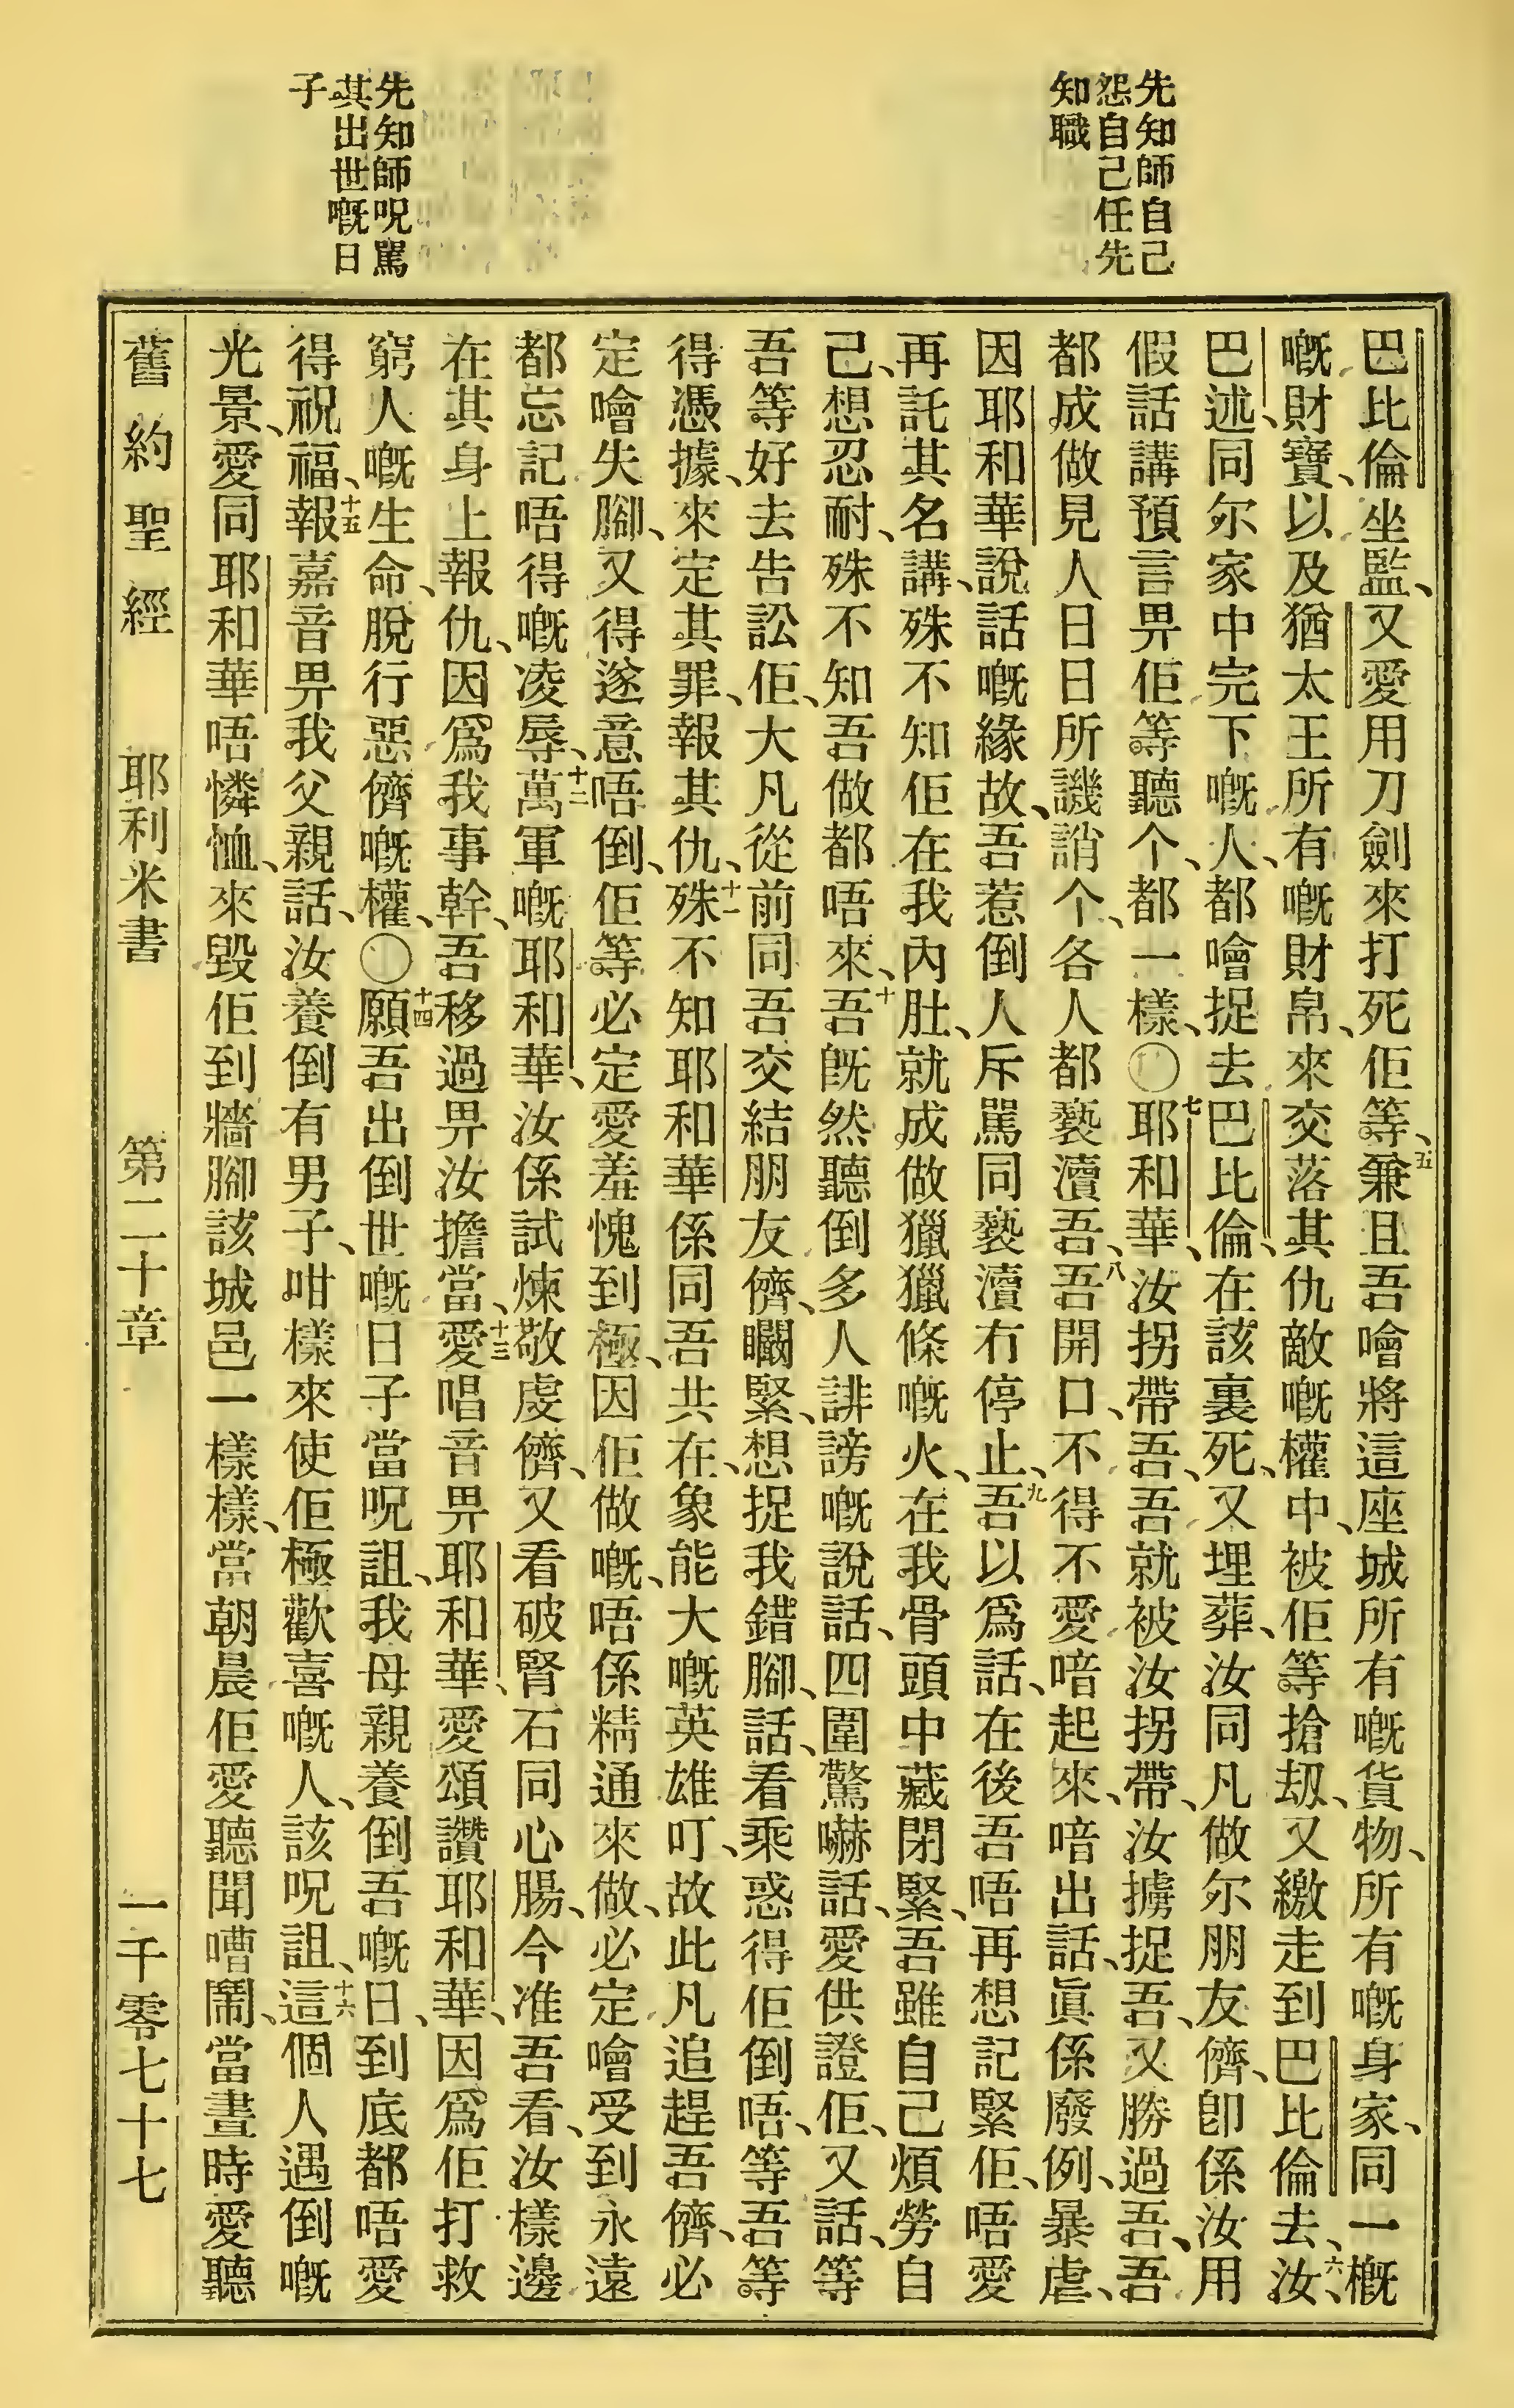 先知師自己
怨自己任先
知職
先知師呪罵
其出世嘅日
子
巴比倫坐監、又愛用刀劍來打死佢等、五兼且吾噲將這座城所有嘅貨物、所有嘅身家、同一概
嘅財寶、以及猶太王所有嘅財帛、來交落其仇敵嘅權中、被佢等搶刧、又繳走到巴比倫去、六汝、
巴述同尔家中完下嘅人、都噲捉去巴比倫、在該裏死、又埋葬、汝同凡做尔朋友儕、卽係汝用
假話講預言畀佢等聽个、都一樣、〇七耶和華、汝拐帶吾、吾就被汝拐帶、汝擄捉吾、又勝過吾、吾
都成做見人日日所譏誚个、各人都褻瀆吾、八吾開口、不得不愛喑起來、喑出話、眞係廢例、暴虐、
因耶和華說話嘅緣故、吾惹倒人斥罵同褻瀆冇停止、九吾以爲話、在後吾唔再想記緊佢、唔愛
再託其名講、殊不知佢在我內肚、就成做獵獵條嘅火、在我骨頭中藏閉緊、吾雖自己煩勞自
己、想忍耐、殊不知吾做都唔來、十吾旣然聽倒多人誹謗嘅說話、四圍驚嚇話、愛供證佢、又話、等
吾等好去告訟佢、大凡從前同吾交結朋友儕、矙緊、想捉我錯腳、話、看乘惑得佢倒唔、等吾等
得憑據、來定其罪、報其仇、十一殊不知耶和華係同吾共在、象能大嘅英雄叮、故此凡追趕吾儕、必
定噲失腳、又得遂意唔倒、佢等必定愛羞愧到極、因佢做嘅、唔係精通來做、必定噲受到永遠
都忘記唔得嘅凌辱、十二萬軍嘅耶和華、汝係試煉敬虔儕、又看破腎石同心腸、今准吾看、汝樣邊
在其身上報仇、因爲我事幹、吾移過畀汝擔當、十三愛唱音畀耶和華、愛頌讚耶和華、因爲佢打救
窮人嘅生命、脫行惡儕嘅權、〇十四願吾出倒世嘅日子當呪詛、我母親養倒吾嘅日、到底都唔愛
得祝福、十五報嘉音畀我父親話、汝養倒有男子、咁樣來使佢極歡喜嘅人、該呪詛、十六這個人遇倒嘅
光景、愛同耶和華唔憐恤、來毀佢到牆腳該城邑一樣樣、當朝晨佢愛聽聞嘈鬧、當晝時愛聽
舊約聖經 耶利米書 第二十章 一千零七十七